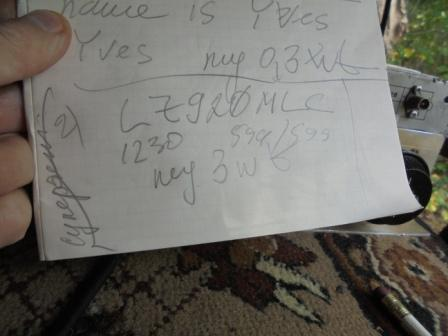 name is Yves
Yves my 0,3 w
LZ920MLC
1230 599/599
my 3 w